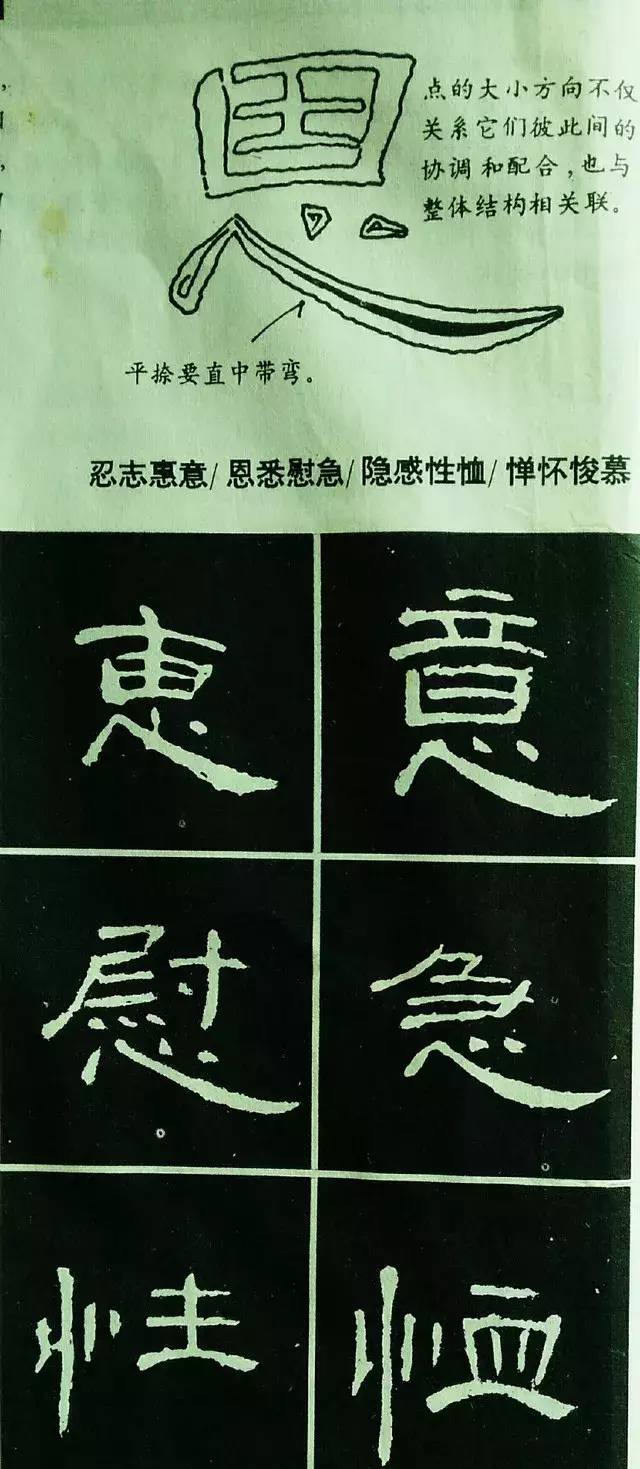 思
点的大小方向不仅
关系它们彼此间的
协调和配合，也与
整体结构相关联。
平捺要直中带弯。
忍志惠意/恩悉慰急/隐感性恤/惮怀悛慕
惠 意
慰 急
性 恤